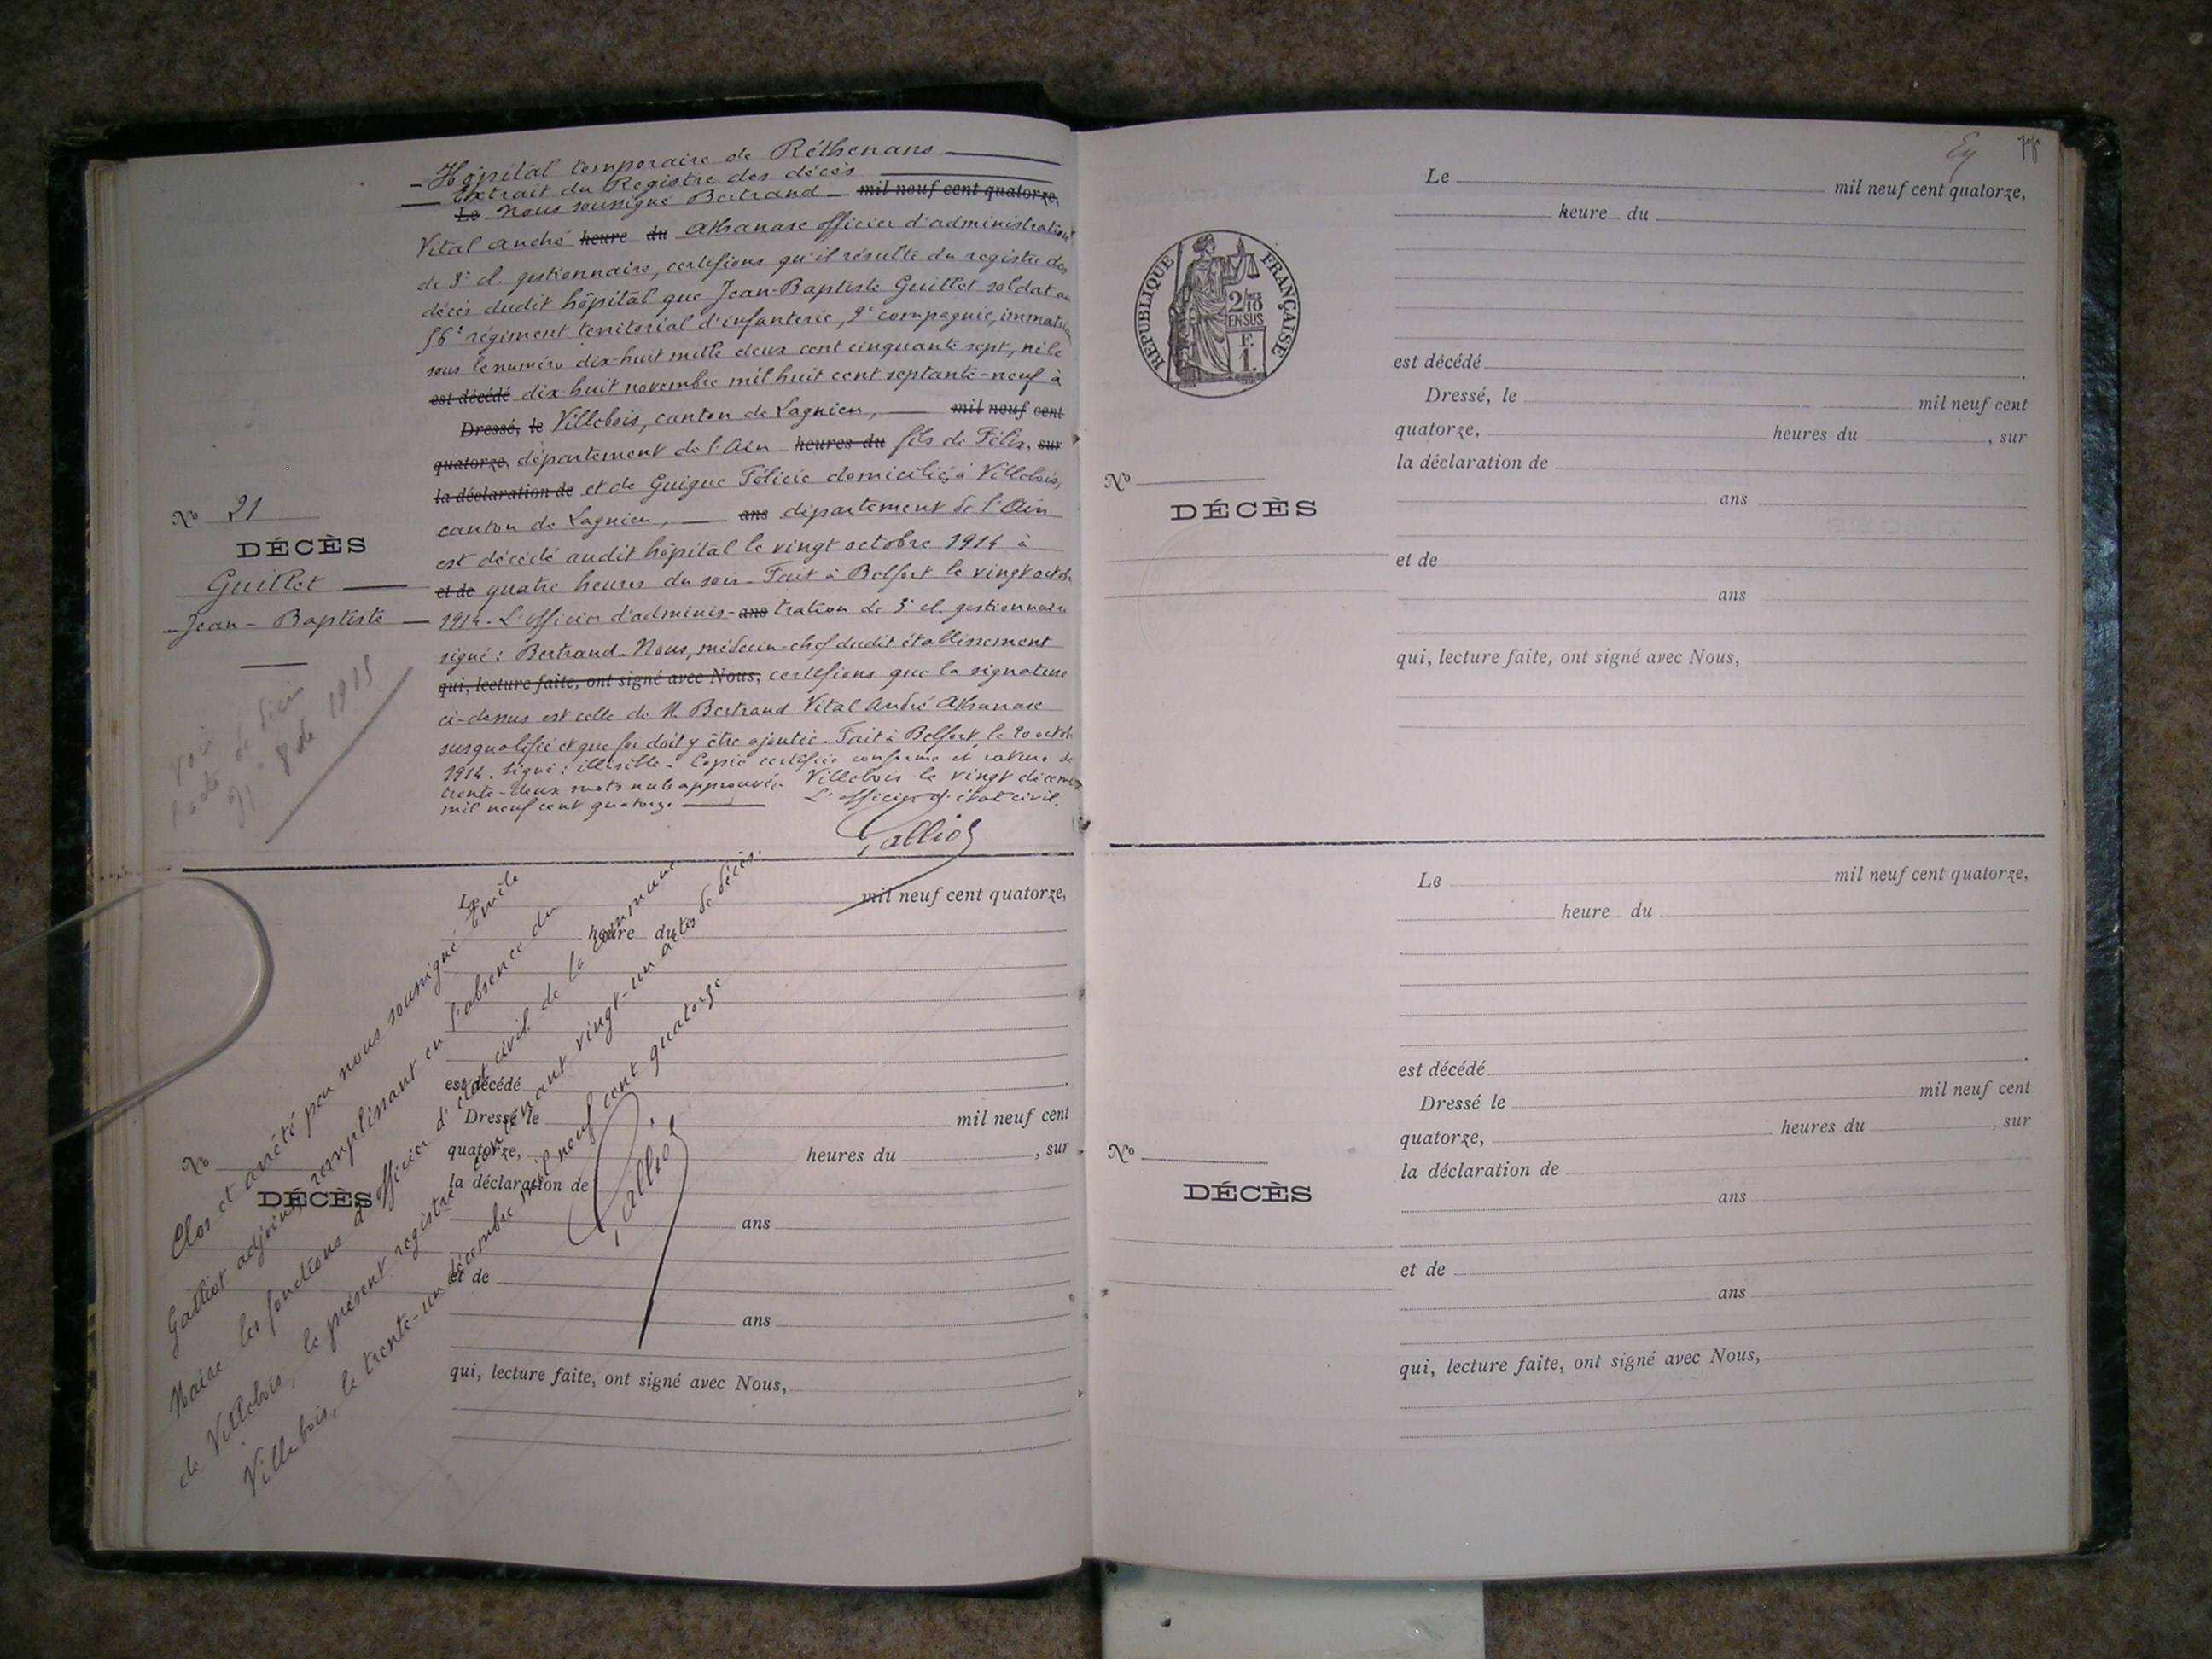 - Hôpital temporaire de Réthenans
Extrait du Registre des décès
Le Nous soussigné Bertrand - mil neuf cent quatorze,
Vital André heure du Athanase officier d'administration
de 3e cl. gestionnaire, certifions qu'il résulte du registre des
décès dudit hôpital que Jean-Baptiste Guillet soldat au
56e régiment territorial d'infanterie, 9e compagnie, immatri
sous le numéro dix-huit mille deux cent cinquante sept, né le
est décédé dix-huit novembre mil huit cent septante-neuf à
Dressé, le Villebois, canton de Lagnieu, mil neuf cent
quatorze, département de l'Ain heures du fils de Félix, sur
la déclaration de et de Guigue Félicie domicilié à Villebois,
canton de Lagnieu, ans département de l'Ain
est décédé audit hôpital le vingt octobre 1914 à
et de quatre heures du soir - Fait à Belfort le vingt octob.
1914. L'officier d'adminis- ans tration de 3e cl. gestionnaire
signé : Bertrand. Nous, médecin-chef dudit établissement
qui, lecture faite, ont signé avec Nous, certifions que la signature
ci-dessus est celle de M. Bertrand Vital André Athanase
susqualifié et que foi doit y être ajoutée. Fait à Belfort le 20 octob
1914. Signé : illisible - Copie certifiée conforme et rature de
trente-deux mots nuls approuvée. Villebois le vingt décembre
mil neuf cent quatorze. L'officier d'état civil.
Galliot
No 21
DÉCÈS
Guillet
Jean-Baptiste
voir
l'acte de décès
no 8 de 1915
Le mil neuf cent quatorze,
heure du
est décédé
Dressé le mil neuf cent
quatorze, heures du , sur
la déclaration de
ans
et de
ans
qui, lecture faite, ont signé avec Nous,
No
DÉCÈS
Clos et arrêté par nous soussigné Emile
Galliot adjoint remplissant en l'absence du
Maire les fonctions d'officier d'état civil de la commune
de Villebois, le présent registre contenant vingt-un actes de décès.
Villebois, le trente-un décembre mil neuf cent quatorze
Galliot
RÉPUBLIQUE FRANÇAISE
2/10
EN SUS
F.
1.
Le mil neuf cent quatorze,
heure du
est décédé
Dressé, le mil neuf cent
quatorze, heures du , sur
la déclaration de
ans
et de
ans
qui, lecture faite, ont signé avec Nous,
No
DÉCÈS
Le mil neuf cent quatorze,
heure du
est décédé
Dressé le mil neuf cent
quatorze, heures du , sur
la déclaration de
ans
et de
ans
qui, lecture faite, ont signé avec Nous,
No
DÉCÈS